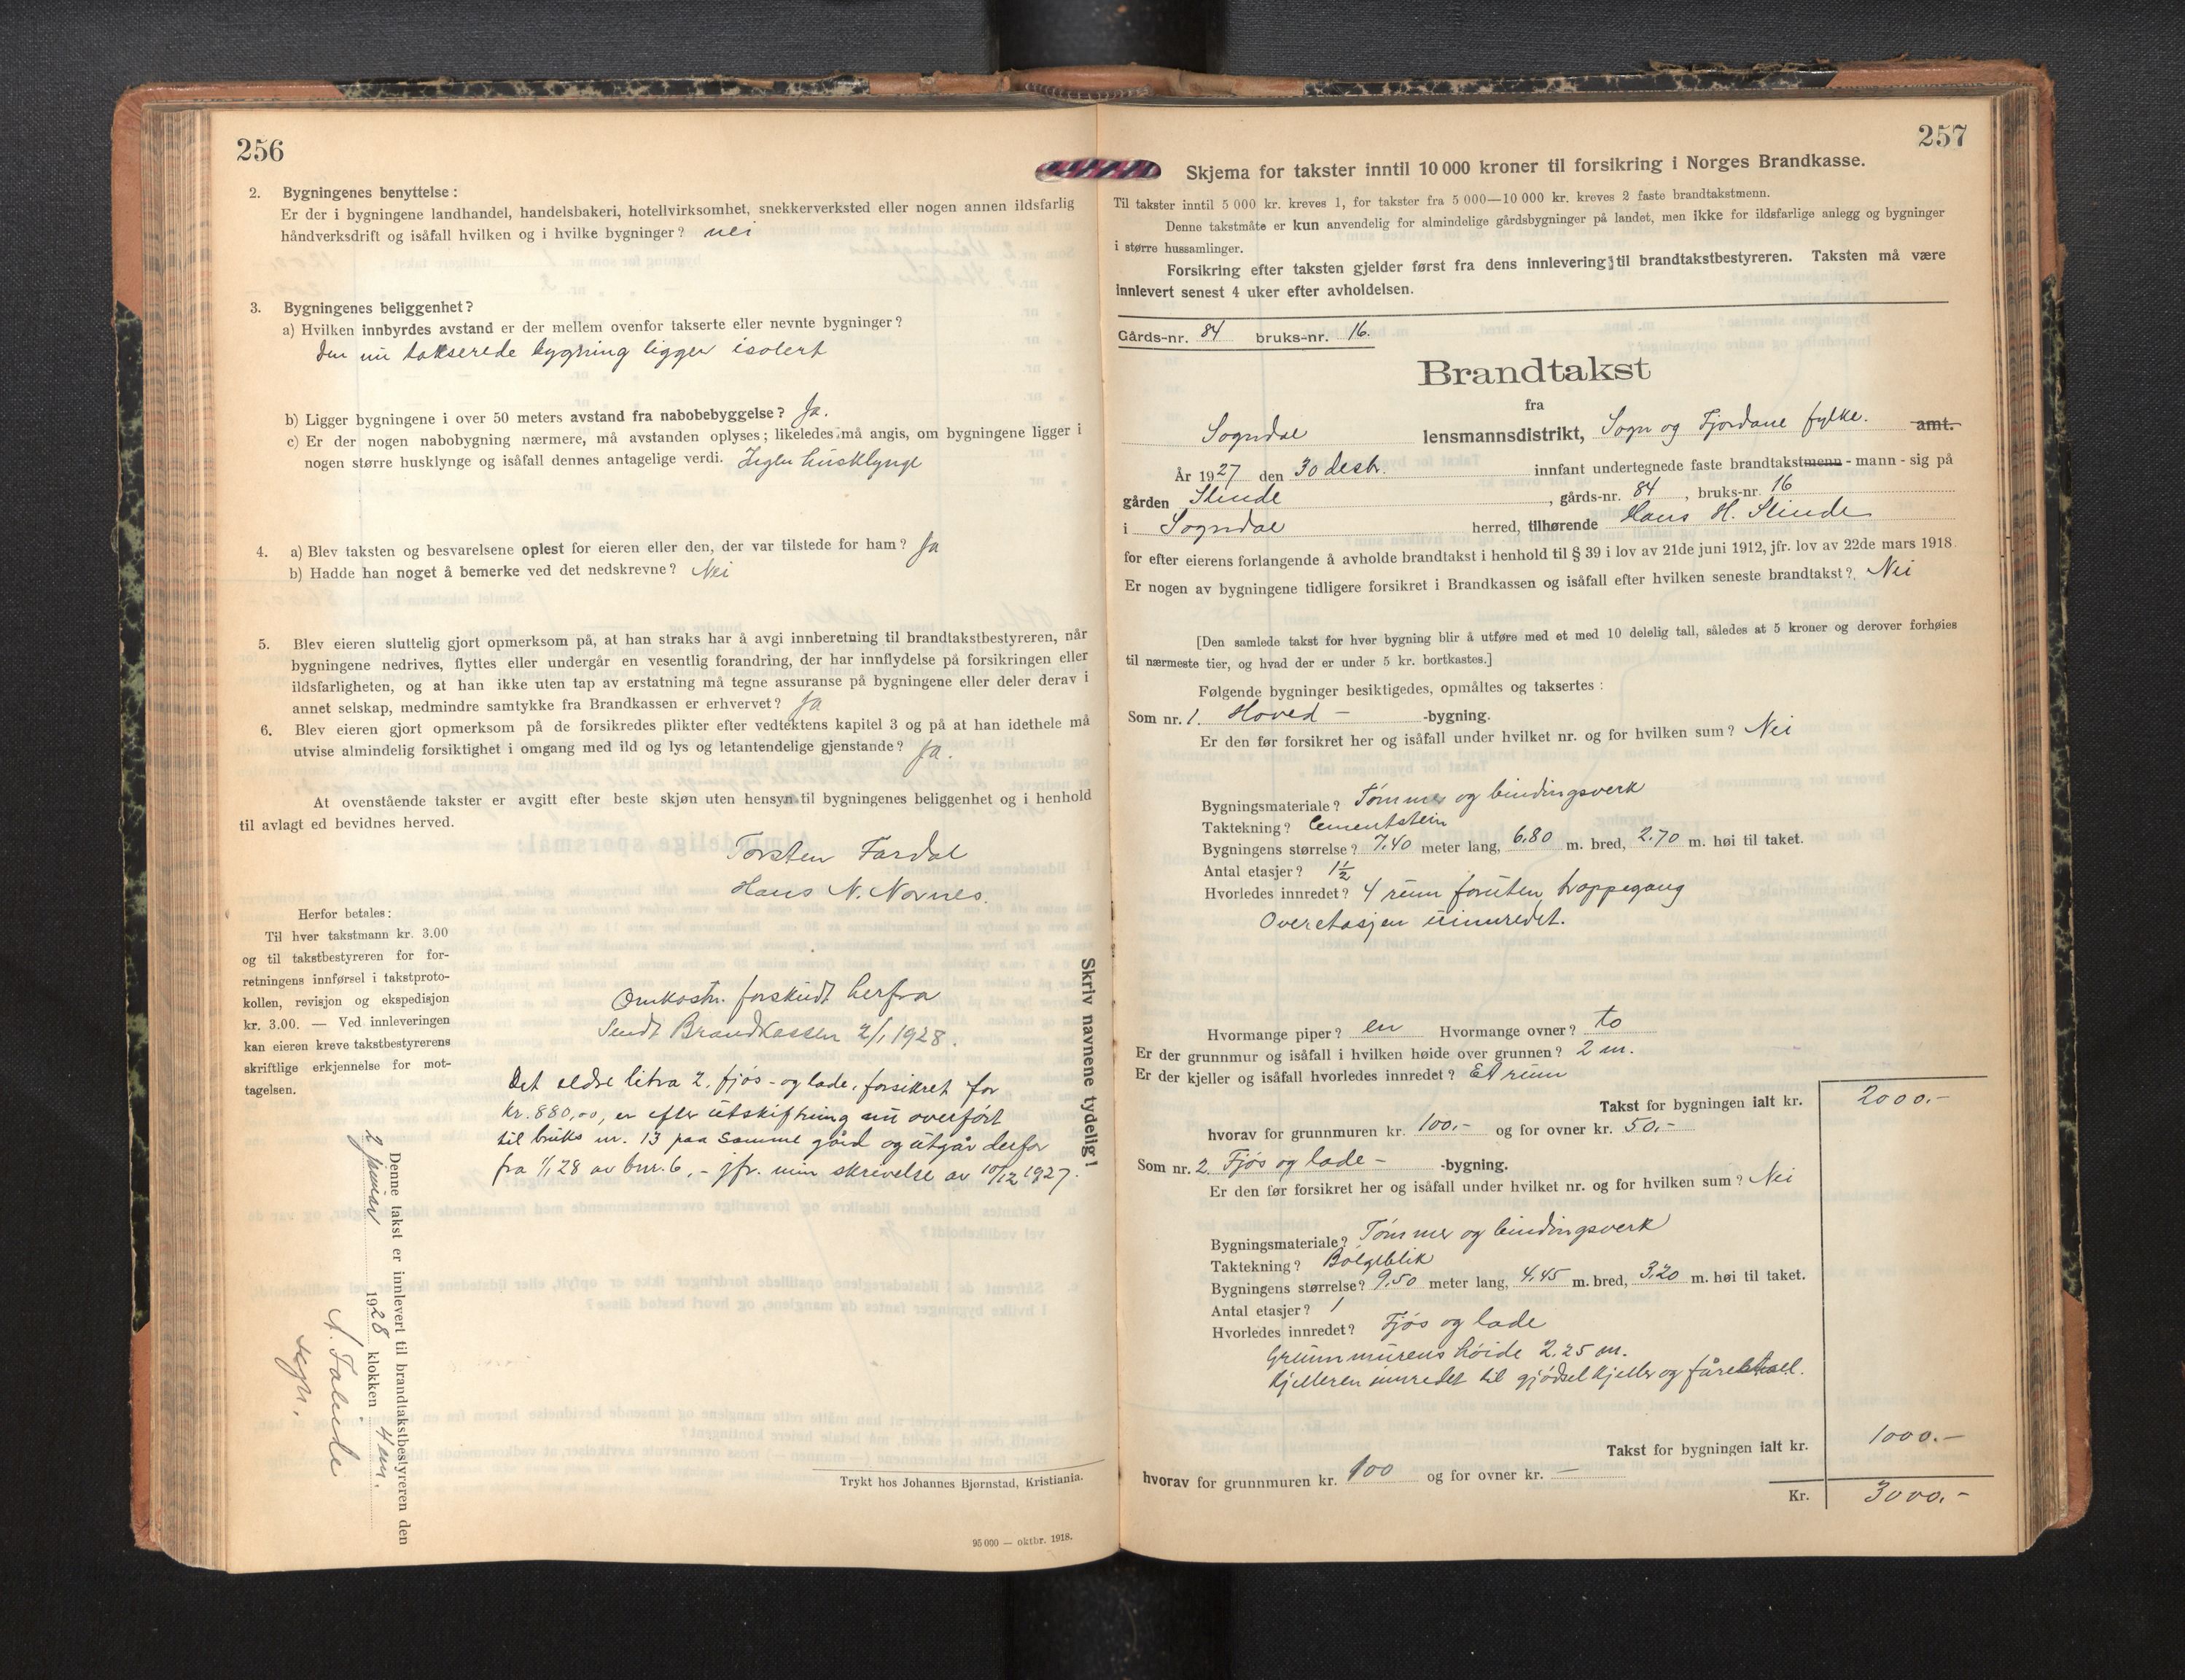 256
2. Bygningenes benyttelse:
Er der i bygningene landhandel, handelsbakeri, hotellvirksomhet, snekkerverksted eller nogen annen ildsfarlig
håndverksdrift og isåfall hvilken og i hvilke bygninger? nei
3. Bygningenes beliggenhet?
a) Hvilken innbyrdes avstand er der mellem ovenfor takserte eller nevnte bygninger?
Den nu takserede bygning ligger isolert
b) Ligger bygningene i over 50 meters avstand fra nabobebyggelse? Ja.
c) Er der nogen nabobygning nærmere, må avstanden oplyses; likeledes må angis, om bygningene ligger i
nogen større husklynge og isåfall dennes antagelige verdi. Ingen husklynge
4. a) Blev taksten og besvarelsene oplest for eieren eller den, der var tilstede for ham? Ja
b) Hadde han noget å bemerke ved det nedskrevne? Nei
5. Blev eieren sluttelig gjort opmerksom på, at han straks har å avgi innberetning til brandtakstbestyreren, når
bygningene nedrives, flyttes eller undergår en vesentlig forandring, der har innflydelse på forsikringen eller
ildsfarligheten, og at han ikke uten tap av erstatning må tegne assuranse på bygningene eller deler derav i
annet selskap, medmindre samtykke fra Brandkassen er erhvervet? Ja
6. Blev eieren gjort opmerksom på de forsikredes plikter efter vedtektens kapitel 3 og på at han idethele må
utvise almindelig forsiktighet i omgang med ild og lys og letantendelige gjenstande? Ja.
At ovenstående takster er avgitt efter beste skjøn uten hensyn til bygningenes beliggenhet og i henhold
til avlagt ed bevidnes herved.
Torsten Fardal
Hans N. Navnes.
Herfor betales:
Til hver takstmann kr. 3.00
og til takstbestyreren for for-
retningens innførsel i takstproto-
kollen, revisjon og ekspedisjon
kr. 3.00. — Ved innleveringen
kan eieren kreve takstbestyrerens
skriftlige erkjennelse for mot-
tagelsen.
Omkostn. forskudt herfra
Sendt Brandkassen 2/1 1928.
Det eldre litra 2. fjøs- og lade, forsikret for
kr. 880,00, er efter utskiftning nu overført
til bruks nr. 13 paa samme gård og utgår derfor
fra 1/1 28 av bnr. 6, - jfr. min skrivelse av 10/12 1927.
Skriv navnene tydelig!
Denne takst er innlevert til brandtakstbestyreren den
2 januar 1928 klokken 4 em.
N. Falende
Sogn.
Trykt hos Johannes Bjørnstad, Kristiania.
95 000 — oktbr. 1918.
257
Skjema for takster inntil 10 000 kroner til forsikring i Norges Brandkasse.
Til takster inntil 5 000 kr. kreves 1, for takster fra 5 000—10 000 kr. kreves 2 faste brandtakstmenn.
Denne takstmåte er kun anvendelig for almindelige gårdsbygninger på landet, men ikke for ildsfarlige anlegg og bygninger
i større hussamlinger.
Forsikring efter taksten gjelder først fra dens innlevering til brandtakstbestyreren. Taksten må være
innlevert senest 4 uker efter avholdelsen.
Gårds-nr. 84 bruks-nr. 16.
Brandtakst
fra
Sogndal lensmannsdistrikt, Sogn og Fjordane fylke. amt.
År 1927 den 30 desbr. innfant undertegnede faste brandtakstmenn - mann - sig på
gården Slinde, gårds-nr. 84, bruks-nr. 16
i Sogndal herred, tilhørende Hans H. Slinde
for efter eierens forlangende å avholde brandtakst i henhold til § 39 i lov av 21de juni 1912, jfr. lov av 22de mars 1918.
Er nogen av bygningene tidligere forsikret i Brandkassen og isåfall efter hvilken seneste brandtakst? Nei
[Den samlede takst for hver bygning blir å utføre med et med 10 delelig tall, således at 5 kroner og derover forhøies
til nærmeste tier, og hvad der er under 5 kr. bortkastes.]
Følgende bygninger besiktigedes, opmåltes og taksertes:
Som nr. 1. Hoved- -bygning.
Er den før forsikret her og isåfall under hvilket nr. og for hvilken sum? Nei
Bygningsmateriale? Tømmer og bindingsverk
Taktekning? Cementstein
Bygningens størrelse? 7.40 meter lang, 6.80 m. bred, 2.70 m. høi til taket.
Antal etasjer? 1½
Hvorledes innredet? 4 rum foruten trappegang
Overetasjen uinnredet.
Hvormange piper? en Hvormange ovner? to
Er der grunnmur og isåfall i hvilken høide over grunnen? 2 m.
Er der kjeller og isåfall hvorledes innredet? Et rum
Takst for bygningen ialt kr. 2000.-
hvorav for grunnmuren kr. 100.- og for ovner kr. 50.-
Som nr. 2. Fjøs og lade- -bygning.
Er den før forsikret her og isåfall under hvilket nr. og for hvilken sum? Nei
Bygningsmateriale? Tømmer og bindingsverk
Taktekning? Bølgeblik
Bygningens størrelse? 9.50 meter lang, 4.45 m. bred, 3.20 m. høi til taket.
Antal etasjer? 1
Hvorledes innredet? Fjøs og lade
Grunnmurens høide 2.25 m.
Kjelleren innredet til gjødselkjeller og fårestall.
Takst for bygningen ialt kr. 1000.-
hvorav for grunnmuren kr. 100 og for ovner kr. —
Kr. 3000.-